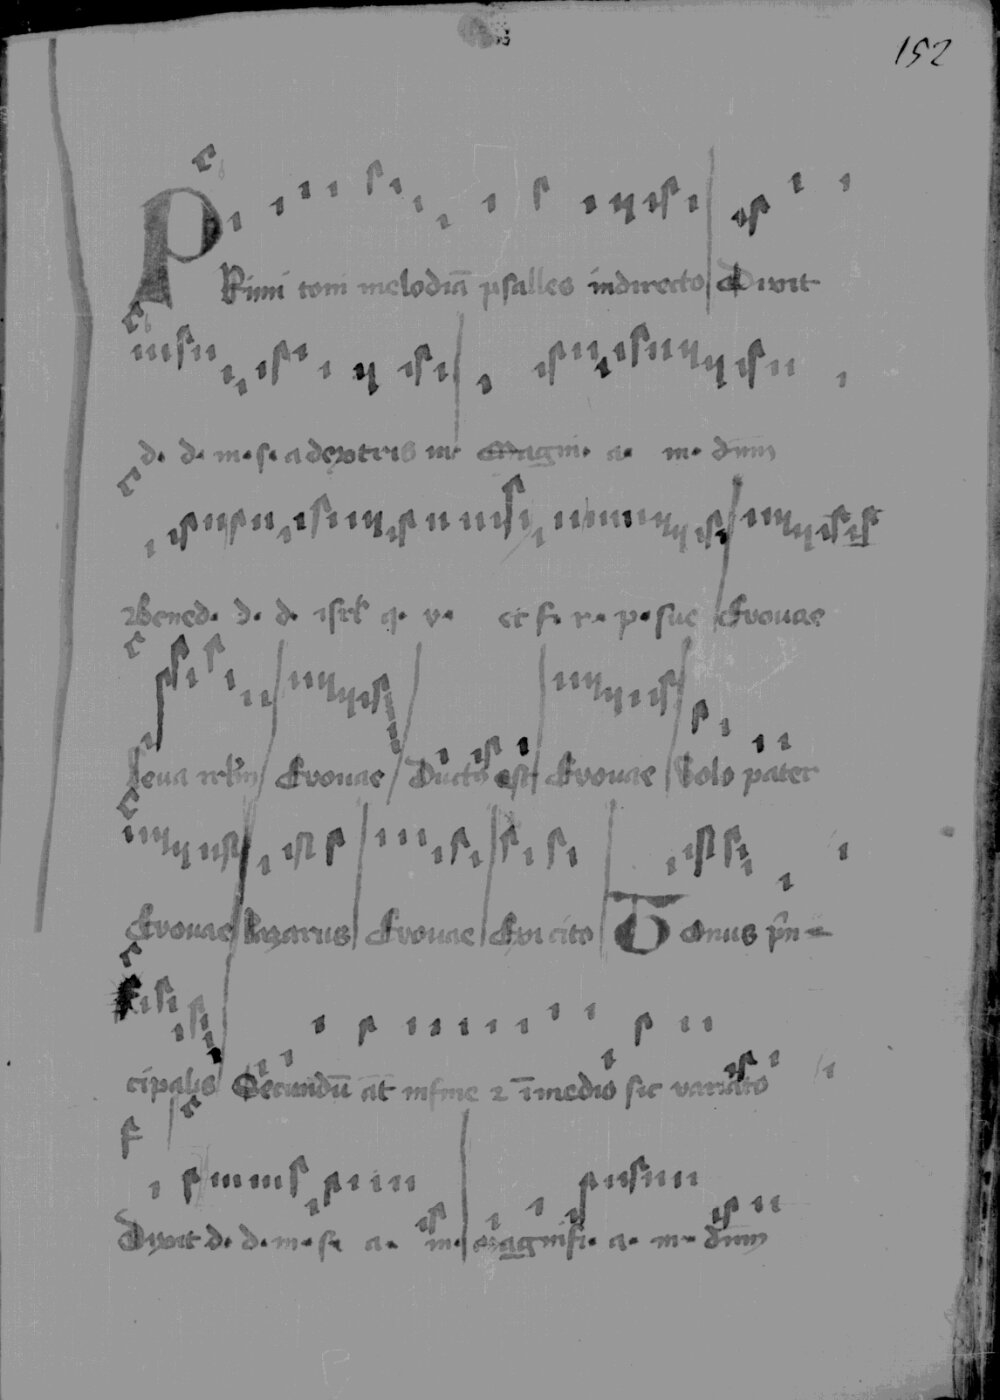 152
PRimi toni melodiā psalles indirecto Dixit
d. d. m. s. a dextris m. Magni. a. m. dnm
Bened. d. d. isrl q. v. et f. r. p. sue Evouae
Leva Evouae Ductus est Evouae Volo pater
Evouae lazarus Evouae Exi cito Tonus prin
cipalis Secundū at in fine 2 ī medio sic variato
Dixit d. d. m. s. a. m. magnifi. a. m. dnm